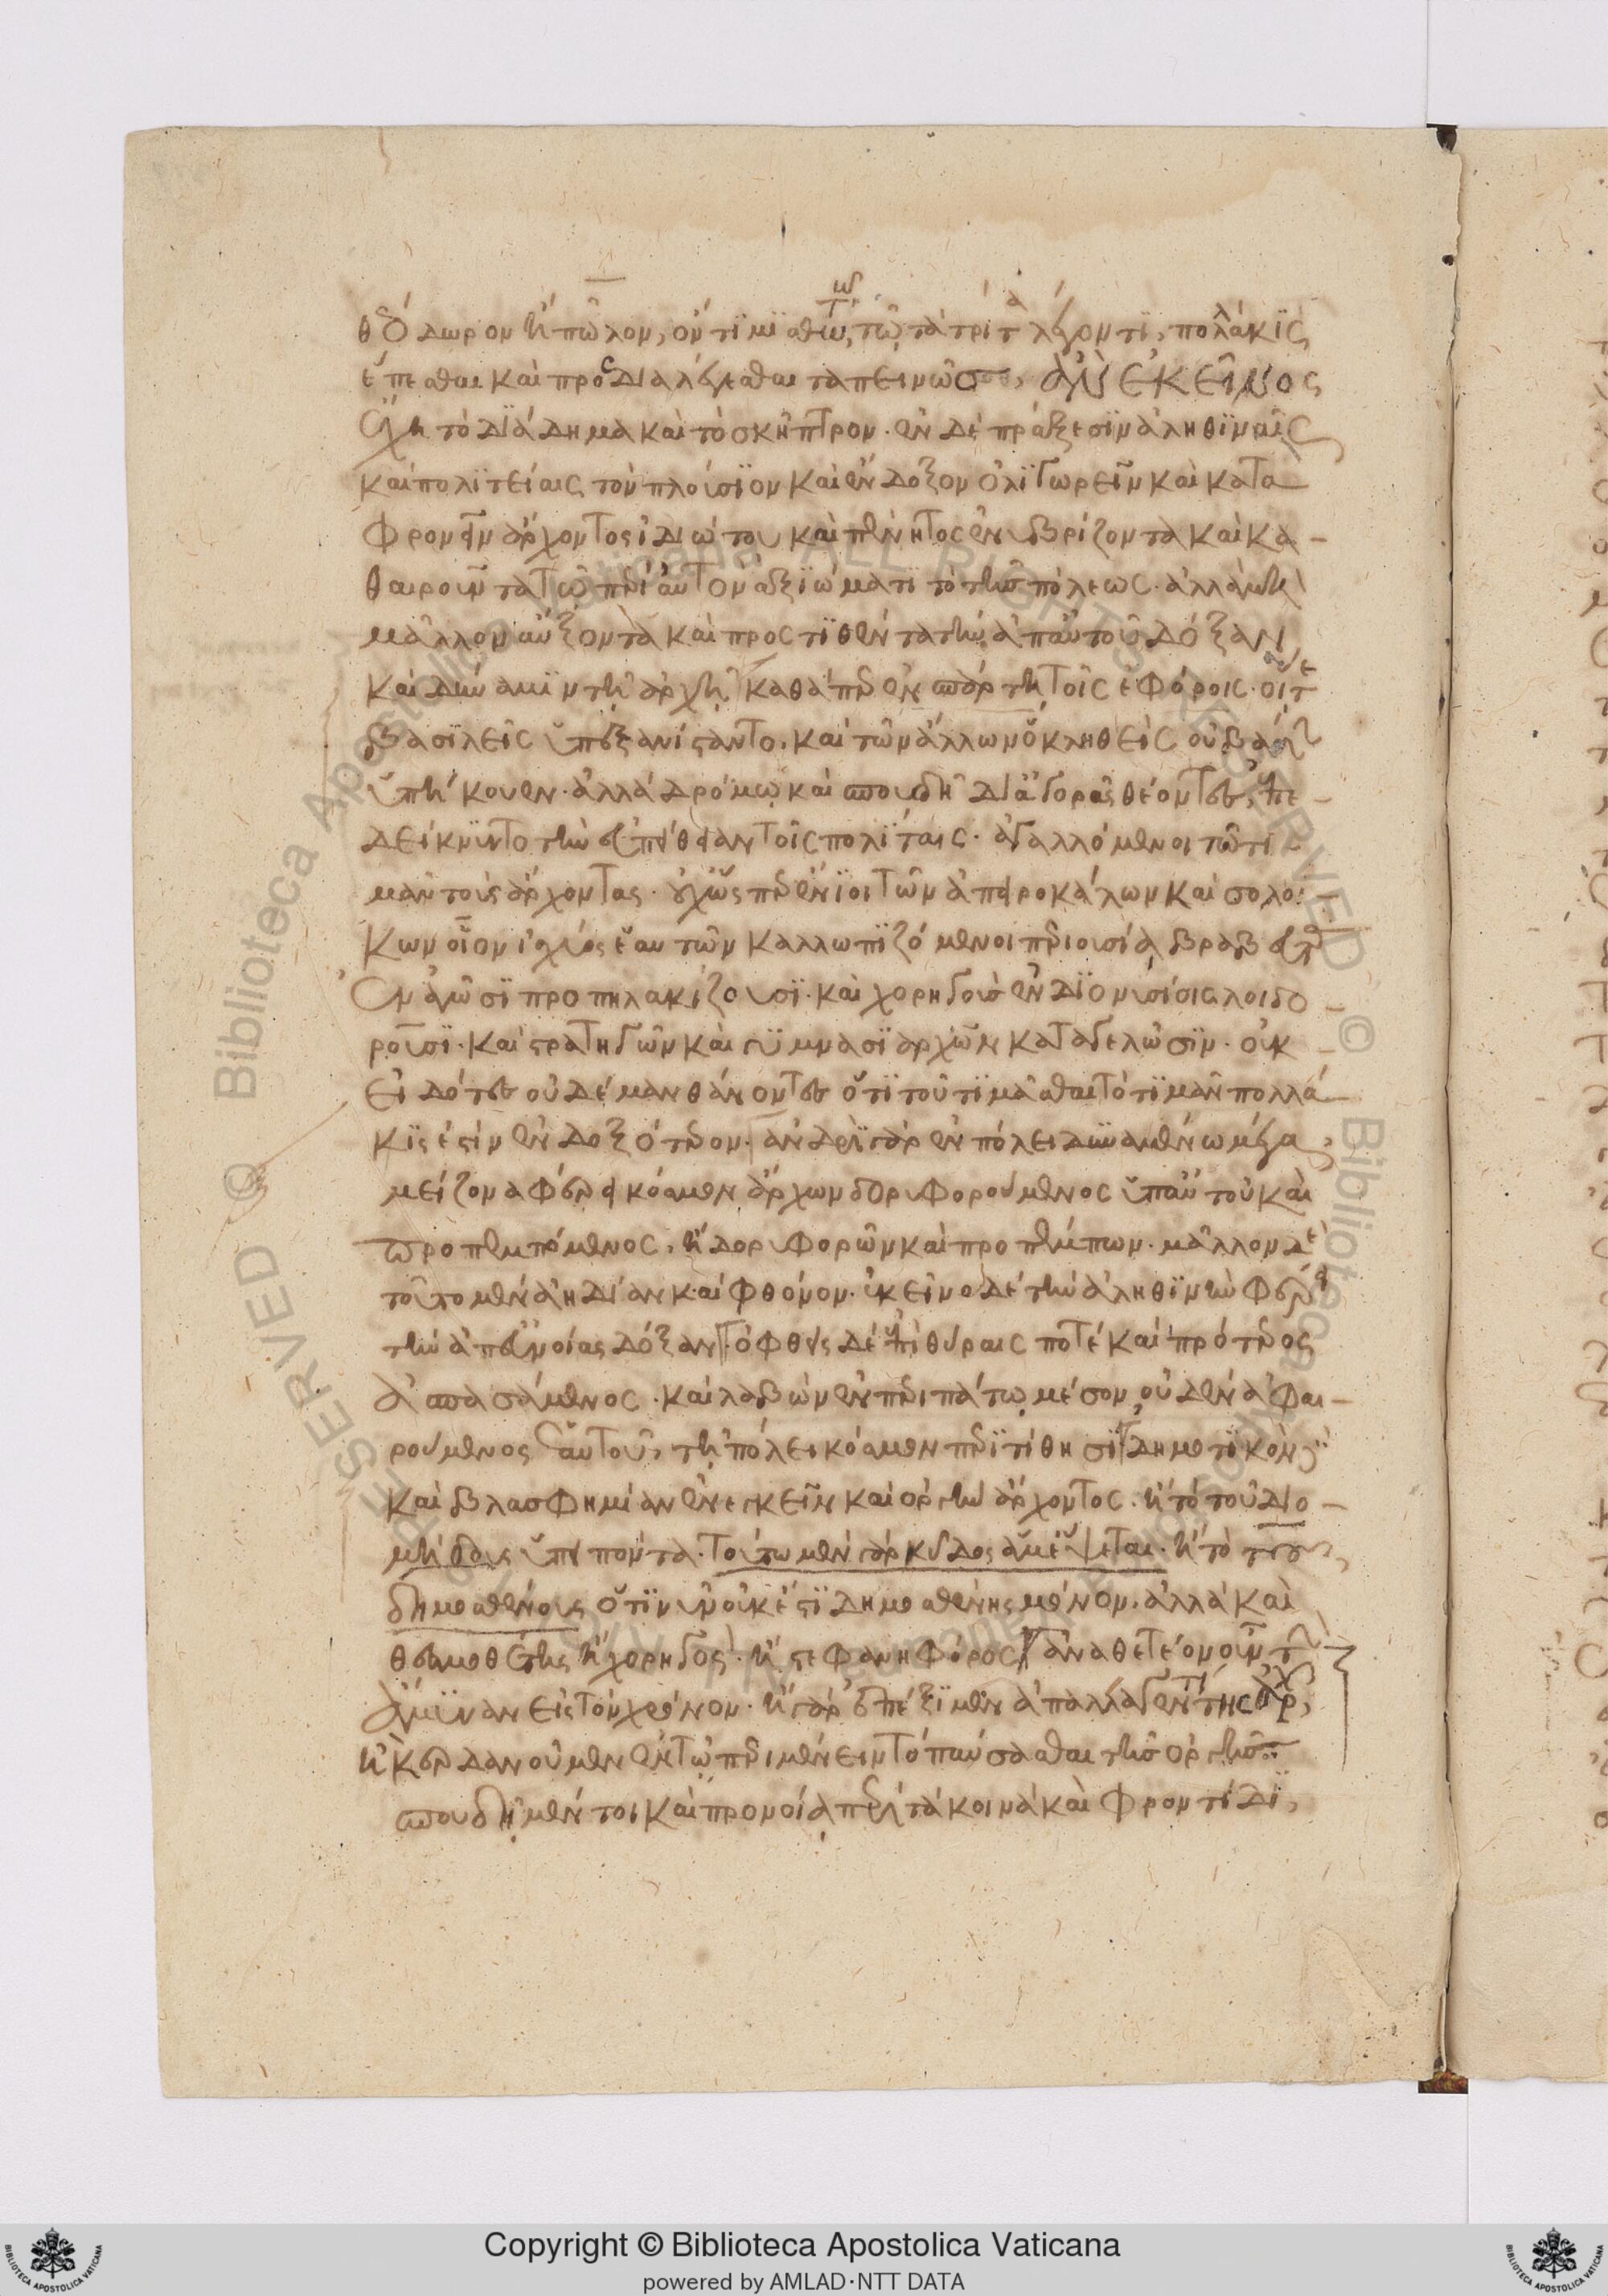 θεόδωρον ἢ πῶλον, ὄντι μισθωτὸν τῷ τὰ τρίτα λέγοντι, πολλάκις
ἕπεσθαι καὶ προσδιαλέγεσθαι ταπεινῶς ἂν ἐκεῖνος
ἔχη τὸ διάδημα καὶ τὸ σκῆπτρον. ἐν δὲ πράξεσιν ἀληθιναῖς
καὶ πολιτείαις τὸν πλούσιον καὶ ἔνδοξον ὀλιγωρεῖν καὶ κατα
φρονεῖν ἄρχοντος ἰδιώτου καὶ πένητος ἐνυβρίζοντα καὶ κα-
θαιροῦντα τῷ περὶ αὐτὸν ἀξιώματι τὸ τῆς πόλεως. ἀλλὰ μὴ
μᾶλλον αὔξοντα καὶ προστιθέντα τὴν ἀπ αὐτοῦ δόξαν
καὶ δύναμιν τῇ ἀρχῇ καθάπερ ἐν σπάρτῃ τοῖς ἐφόροις. οἵτε
βασιλεῖς ὑπεξανίσταντο. καὶ τῶν ἄλλων ὁ κληθεὶς οὐ βάδην
ὑπήκουεν. ἀλλὰ δρόμῳ καὶ σπουδῇ δι ἀγορᾶς θέοντες, ἐπε-
δείκνυντο τὴν εὐπείθειαν τοῖς πολίταις. ἀγαλλόμενοι τῷ τι
μᾶν τοὺς ἄρχοντας. οὐχ ὥσπερ ἔνιοι τῶν ἀπειροκάλων καὶ σολοί-
κων οἷον ἰσχύος ἑαυτῶν καλλωπιζόμενοι περιουσίᾳ βραβευτὰς
ἐν ἀγῶσι προπηλακίζουσι. καὶ χορηγοὺς ἐν διονυσίοις λοιδο-
ροῦσι. καὶ στρατηγῶν καὶ γυμνασιάρχων καταγελῶσιν. οὐκ
εἰδότες οὐδὲ μανθάνοντες ὅτι τοῦ τιμᾶσθαι τὸ τιμᾶν πολλά-
κις ἐστὶν ἐνδοξότερον. ἀνδρὶ γὰρ ἐν πόλει δυναμένω μέγα,
μείζονα φέρει κόσμον ἄρχων δορυφορούμενος ὑπ αὐτοῦ καὶ
προπεμπόμενος, ἢ δορυφορῶν καὶ προπέμπων. μᾶλλον δὲ
τοῦτο μὲν ἀηδίαν καὶ φθόνον. ἐκεῖνο δὲ τὴν ἀληθινὴν φέρει
τὴν ἀπ εὐνοίας δόξαν. ὀφθεὶς δὲ ἐπὶ θύραις ποτὲ καὶ πρότερος
ἀσπασάμενος. καὶ λαβὼν ἐν περιπάτῳ μέσον, οὐδὲν ἀφαι-
ρούμενος ἑαυτοῦ, τῇ πόλει κόσμον περιτίθησι. δημοτικὸν
καὶ βλασφημίαν ἐνεγκεῖν καὶ ὀργὴν ἄρχοντος. ἢ τὸ τοῦ διο-
μήδους ὑπειπόντα. τούτω μὲν γὰρ κῦδος ἅμ ἕψεται. ἢ τὸ τοῦ
δημοσθένους ὅτι νῦν οὐκ ἔστι δημοσθένης μόνον. ἀλλὰ καὶ
θεσμοθέτης ἢ χορηγός. ἢ στεφανηφόρος. ἀναθετέον οὖν τὴν
ἄμυναν εἰς τὸν χρόνον. ἢ γὰρ ἐπέξιμεν ἀπαλλαγέντι τῆς ἀρχ,
ἢ κερδανοῦμεν ἐν τῷ περιμένειν τὸ παύσασθαι τῆς ὀργῆς.
σπουδῇ μέντοι καὶ προνοίᾳ περὶ τὰ κοινὰ καὶ φροντίδι,
Copyright © Biblioteca Apostolica Vaticana
powered by AMLAD·NTT DATA